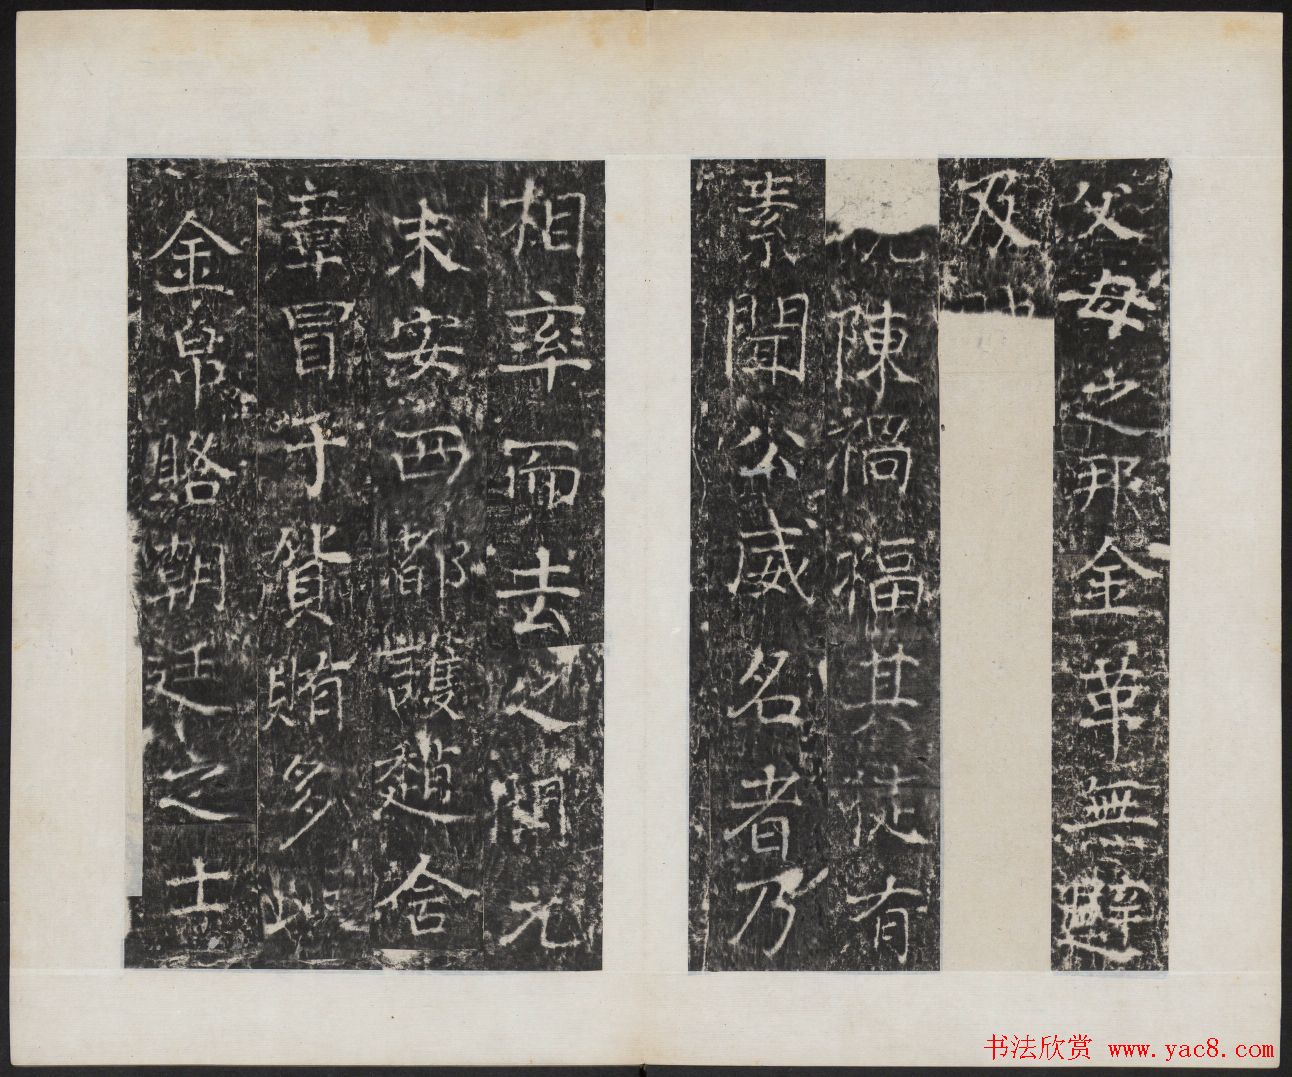 父母之邦金革無避
及
陳禍福其徒有
素聞公威名者乃
相率而去之開元
末安西都護趙含
章冒于貨賄多此
金帛賂朝廷之士
书法欣赏 www.yac8.com